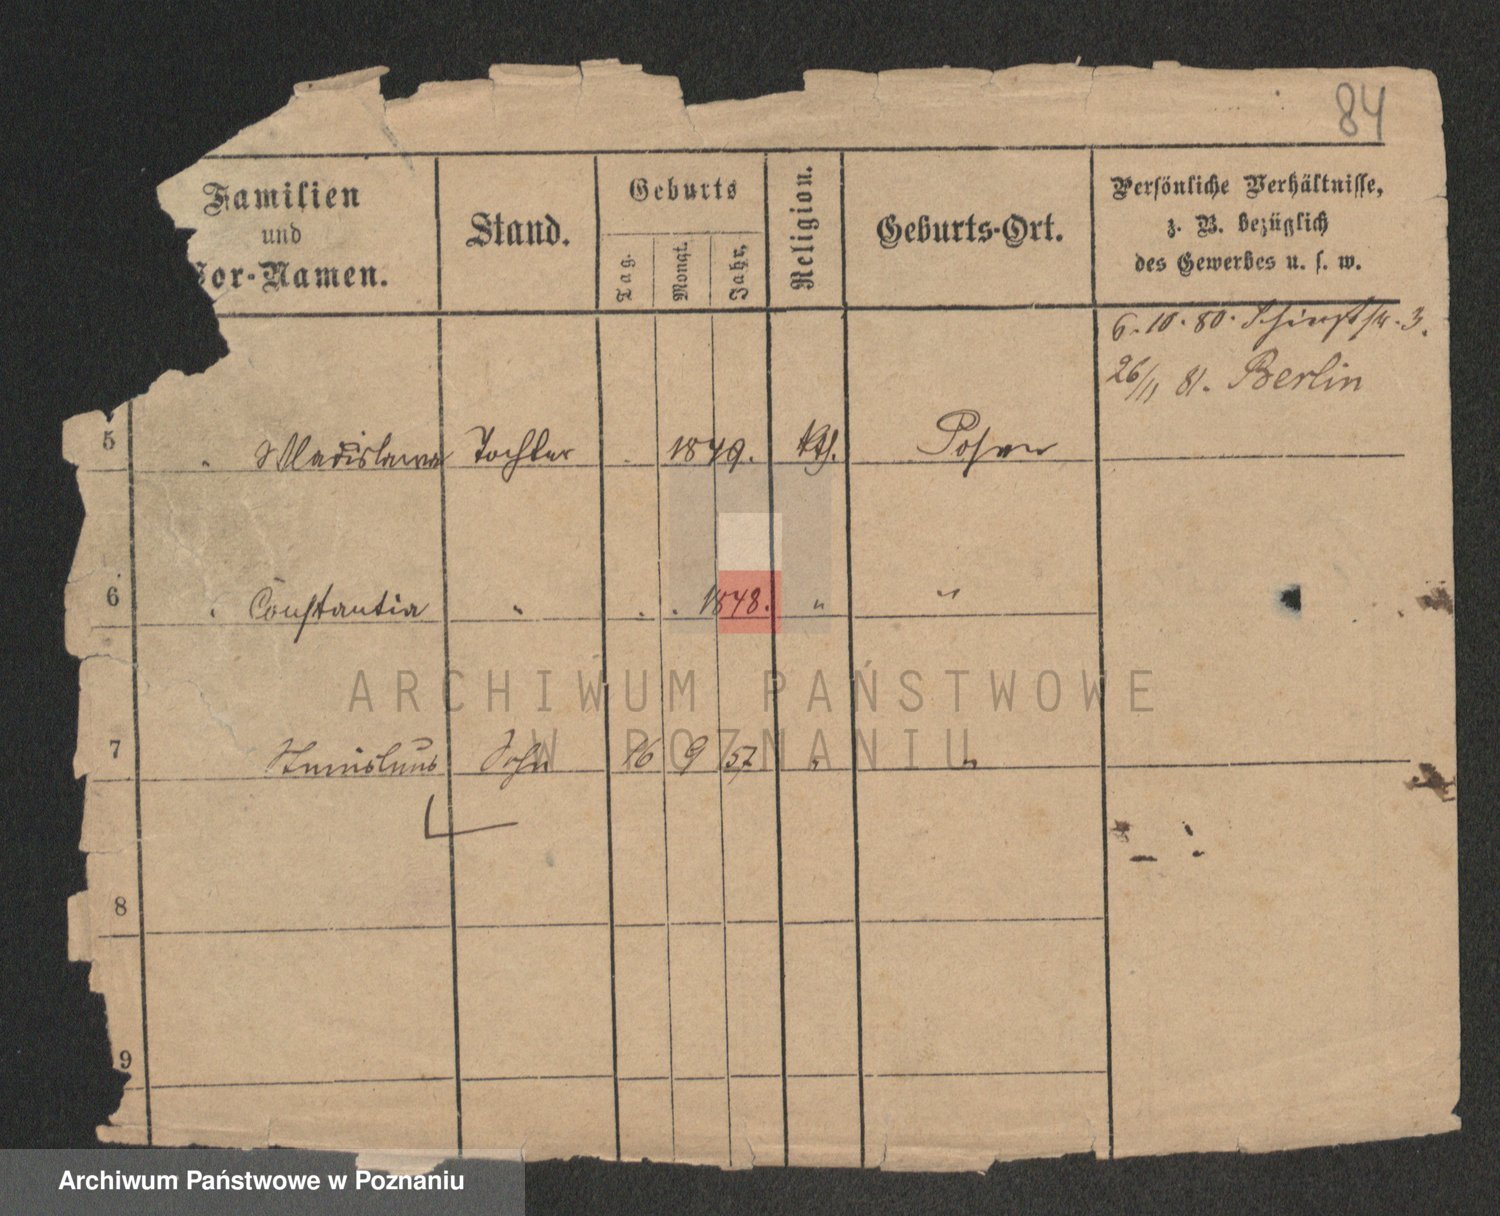 84
Familien
und
Vor-Namen.
Stand.
Geburts
Tag.
Monat.
Jahr.
Religion.
Geburts-Ort.
Persönliche Verhältnisse,
z. B. bezüglich
des Gewerbes u. s. w.
6. 10. 80. 3.
26/11 81. Berlin
5 " Wladislawa Tochter . 1849. kth. Posen
6 " Constantia " . . 1848. " "
7 Stanislaus Sohn 16 9 57 " "
8
9
ARCHIWUM PAŃSTWOWE
W POZNANIU
Archiwum Państwowe w Poznaniu